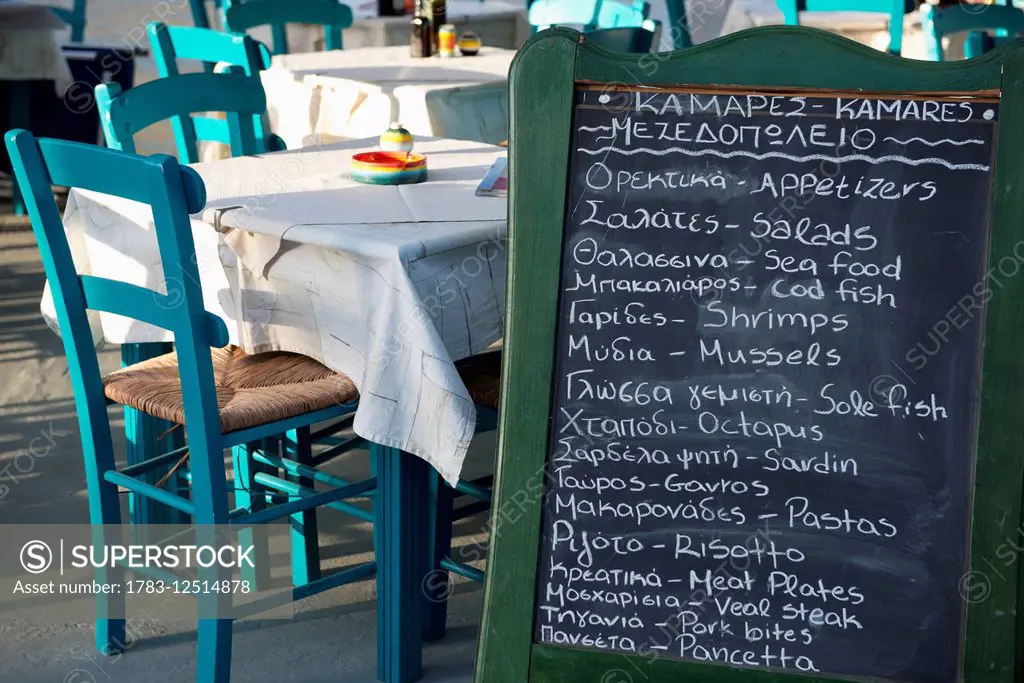 • ΚΑΜΑΡΕΣ - KAMARES •
ΜΕΖΕΔΟΠΩΛΕΙΟ
Ορεκτικά - Appetizers
Σαλάτες - Salads
Θαλασσινα - Sea food
Μπακαλιάρος - Cod fish
Γαρίδες - Shrimps
Μύδια - Mussels
Γλώσσα γεμιστή - Sole fish
Χταπόδι - Octapus
Σαρδέλα ψητή - Sardin
Γαύρος - Gavros
Μακαρονάδες - Pastas
Ριζότο - Risotto
Κρεατικά - Meat Plates
Μοσχαρίσια - Veal steak
Τηγανιά - Pork bites
Πανσέτα - Pancetta
snapstock
Snapstock
1783-12514878